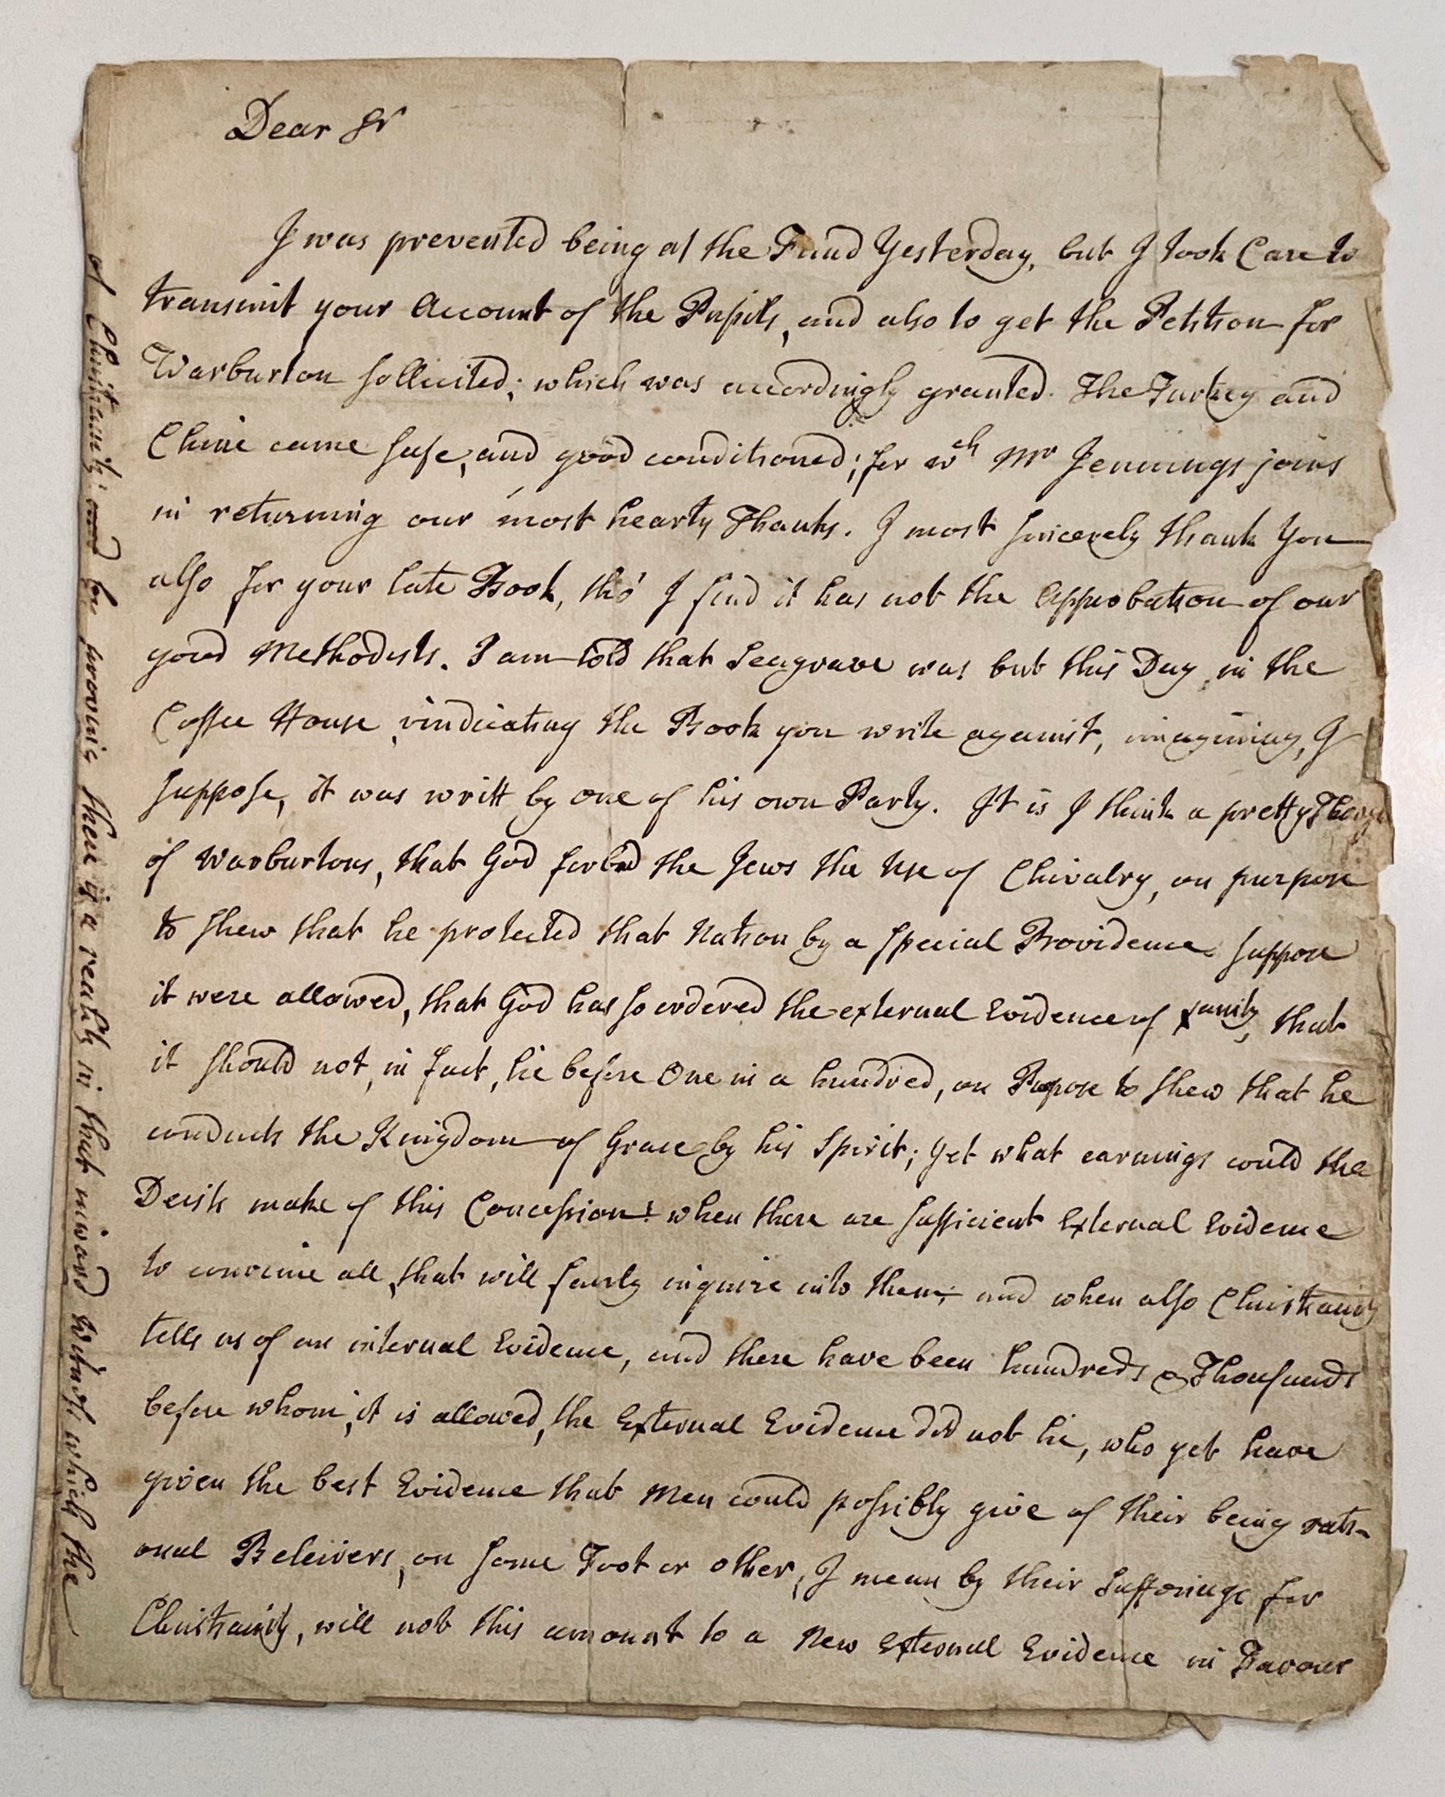 Dear Sr
I was prevented being at the Fund Yesterday, but I took Care to
transmit your Account of the Pupils, and also to get the Petition for
Warburton sollicited; which was accordingly granted. The Turkey and
Chine came safe, and good conditioned; for wch Mr Jennings joins
in returning our most hearty Thanks. I most sincerely thank You
also for your late Book, tho' I find it has not the Approbation of our
good Methodists. I am told that Seagrave was but this Day, in the
Coffee House, vindicating the Book you write against, imagining, I
suppose, it was writt by one of his own Party. It is I think a pretty
of Warburtons, that God forbid the Jews the Use of Chivalry, on purpose
to shew that he protected that Nation by a special Providence. Suppose
it were allowed, that God has so ordered the external Evidence of Xanity, that
it should not, in fact, lie before One in a hundred, on Purpose to shew that he
conducts the Kingdom of Grace by his Spirit; Yet what earnings could the
Deists make of this Concession? when there are sufficient External Evidence
to convince all, that will fairly inquire into them; and when also Christianity
tells us of an internal Evidence, and there have been hundreds & Thousands
before whom, it is allowed, the External Evidence did not lie, who yet have
given the best Evidence that Men could possibly give of their being rati-
onal Beleivers, on some Foot or other, I mean by their Sufferings for
Christianity, will not this amount to a New External Evidence in Favour
of Christianity; and by proving there is a reality in that inward Witness which the